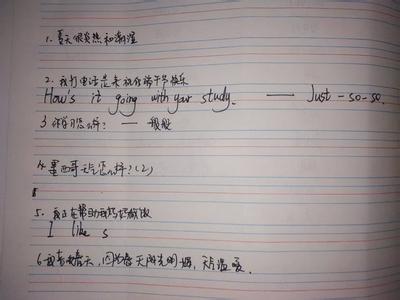 1. 夏天很炎热和潮湿
2. 我打电话是来祝你端午节快乐
How's it going with your study. — Just-so-so.
3 你学习怎么样? — 一般般
4. 墨西哥天气怎么样?(2)
5. 我正在帮助我妈妈做饭
I like s
6 我喜欢春天,因为春天阳光明媚,天气温暖.